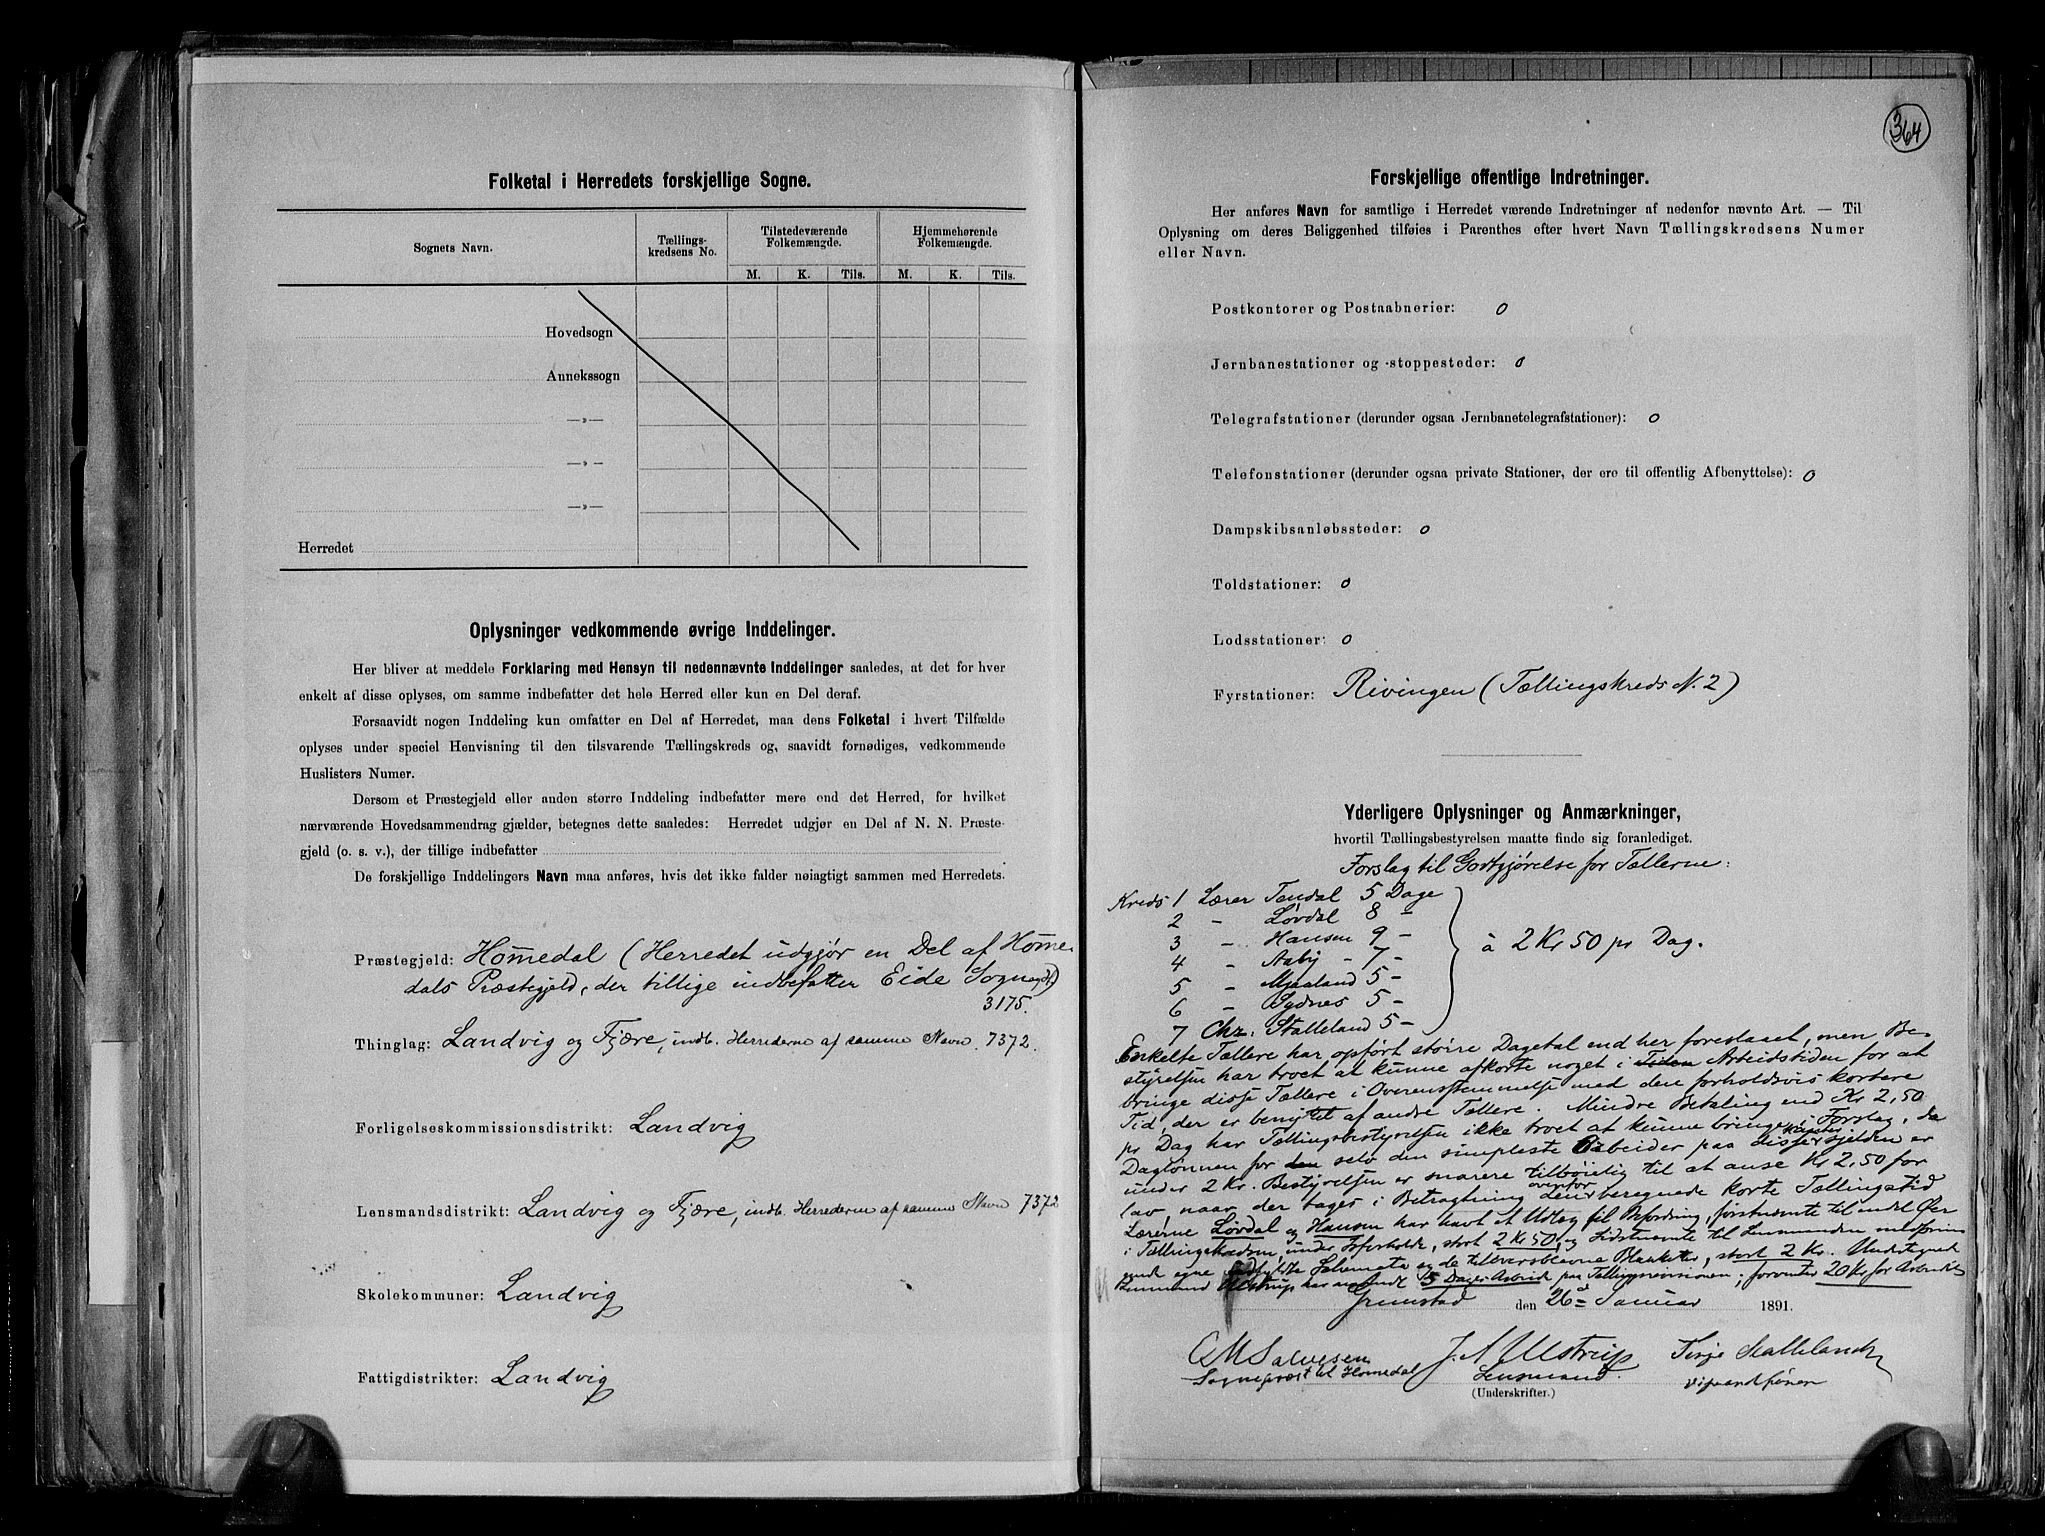 Folketal i Herredets forskjellige Sogne.
Sognets Navn.
Tællings-
kredsens No.
Tilstedeværende
Folkemængde.
Hjemmehørende
Folkemængde.
M. K. Tils. M. K. Tils.
Hovedsogn
Annekssogn
—»—
—»—
—»—
Herredet
Oplysninger vedkommende øvrige Inddelinger.
Her bliver at meddele Forklaring med Hensyn til nedennævnte Inddelinger saaledes, at det for hver
enkelt af disse oplyses, om samme indbefatter det hele Herred eller kun en Del deraf.
Forsaavidt nogen Inddeling kun omfatter en Del af Herredet, maa dens Folketal i hvert Tilfælde
oplyses under speciel Henvisning til den tilsvarende Tællingskreds og, saavidt fornødiges, vedkommende
Huslisters Numer.
Dersom et Præstegjeld eller anden større Inddeling indbefatter mere end det Herred, for hvilket
nærværende Hovedsammendrag gjælder, betegnes dette saaledes: Herredet udgjør en Del af N. N. Præste-
gjeld (o. s. v.), der tillige indbefatter
De forskjellige Inddelingers Navn maa anføres, hvis det ikke falder nøiagtigt sammen med Herredets.
Præstegjeld: Homedal (Herredet udgjør en Del af Home-
dals Præstegjeld, der tillige indbefatter Eide Sogn
3175.
Thinglag: Landvig og Fjære, indb. Herrederne af samme Navn. 7372.
Forligelseskommissionsdistrikt: Landvig
Lensmandsdistrikt: Landvig og Fjære, indb. Herrederne af samme Navn 7372
Skolekommuner: Landvig
Fattigdistrikter: Landvig
364
Forskjellige offentlige Indretninger.
Her anføres Navn for samtlige i Herredet værende Indretninger af nedenfor nævnte Art. — Til
Oplysning om deres Beliggenhed tilføies i Parenthes efter hvert Navn Tællingskredsens Numer
eller Navn.
Postkontorer og Postaabnerier: 0
Jernbanestationer og -stoppesteder: 0
Telegrafstationer (derunder ogsaa Jernbanetelegrafstationer): 0
Telefonstationer (derunder ogsaa private Stationer, der ere til offentlig Afbenyttelse): 0
Dampskibsanløbssteder: 0
Toldstationer: 0
Lodsstationer: 0
Fyrstationer: Rivingen (Tællingskreds N. 2)
Yderligere Oplysninger og Anmærkninger,
hvortil Tællingsbestyrelsen maatte finde sig foranlediget.
Forslag til Godtgjørelse for Tællerne:
Kreds 1 Lærer Tondal 5 Dage
2 - Løvdal 8 -
3 - Hansen 9 -
4 - Aaby - 7 -
5 - Mjaaland 5 -
6 - Sydnes 5 -
7 Chr. Stalleland 5 -
à 2 Kr 50 pr Dag.
Enkelte Tællere har opført større Dagetal end her foreslaaet, men Be-
styrelsen har troet at kunne afkorte noget i Tiden Arbeidstiden for at
bringe disse Tællere i Overensstemmelse med den forholdsvis kortere
Tid, der er benyttet af andre Tællere. Mindre Betaling end Kr 2,50
pr Dag har Tællingsbestyrelsen ikke troet at kunne bringe i Forslag, da
Daglønnen for den selv den simpleste Arbeider paa disse kanter sjelden er
under 2 Kr. Bestyrelsen er snarere tilbøielig til at anse Kr 2,50 for
lav naar der tages i Betragtning den ovenfor beregnede korte Tællingstid
Lærerne Løvdal og Hansen har havt et Udlæg til Befordring, førstnævnte til endel Øer
i Tællingskredsen, under Isforholde, stort 2 Kr 50, og sidstnævnte til Lensmanden
egne udfyldte Schemata og de tiloversblevne Blanketter, stort 2 Kr. Undertegnede
Lensmand Ulstrup har anvendt 5 Dages Arbeide paa Tællingsrevisionen, forventer 20 Kr for Arbeidet
Grimstad den 26de Januar 1891.
O M Salvesen
Sogneprest til Homedal
J. N Ulstrup
Lensmand.
(Underskrifter.)
Terje Stalleland